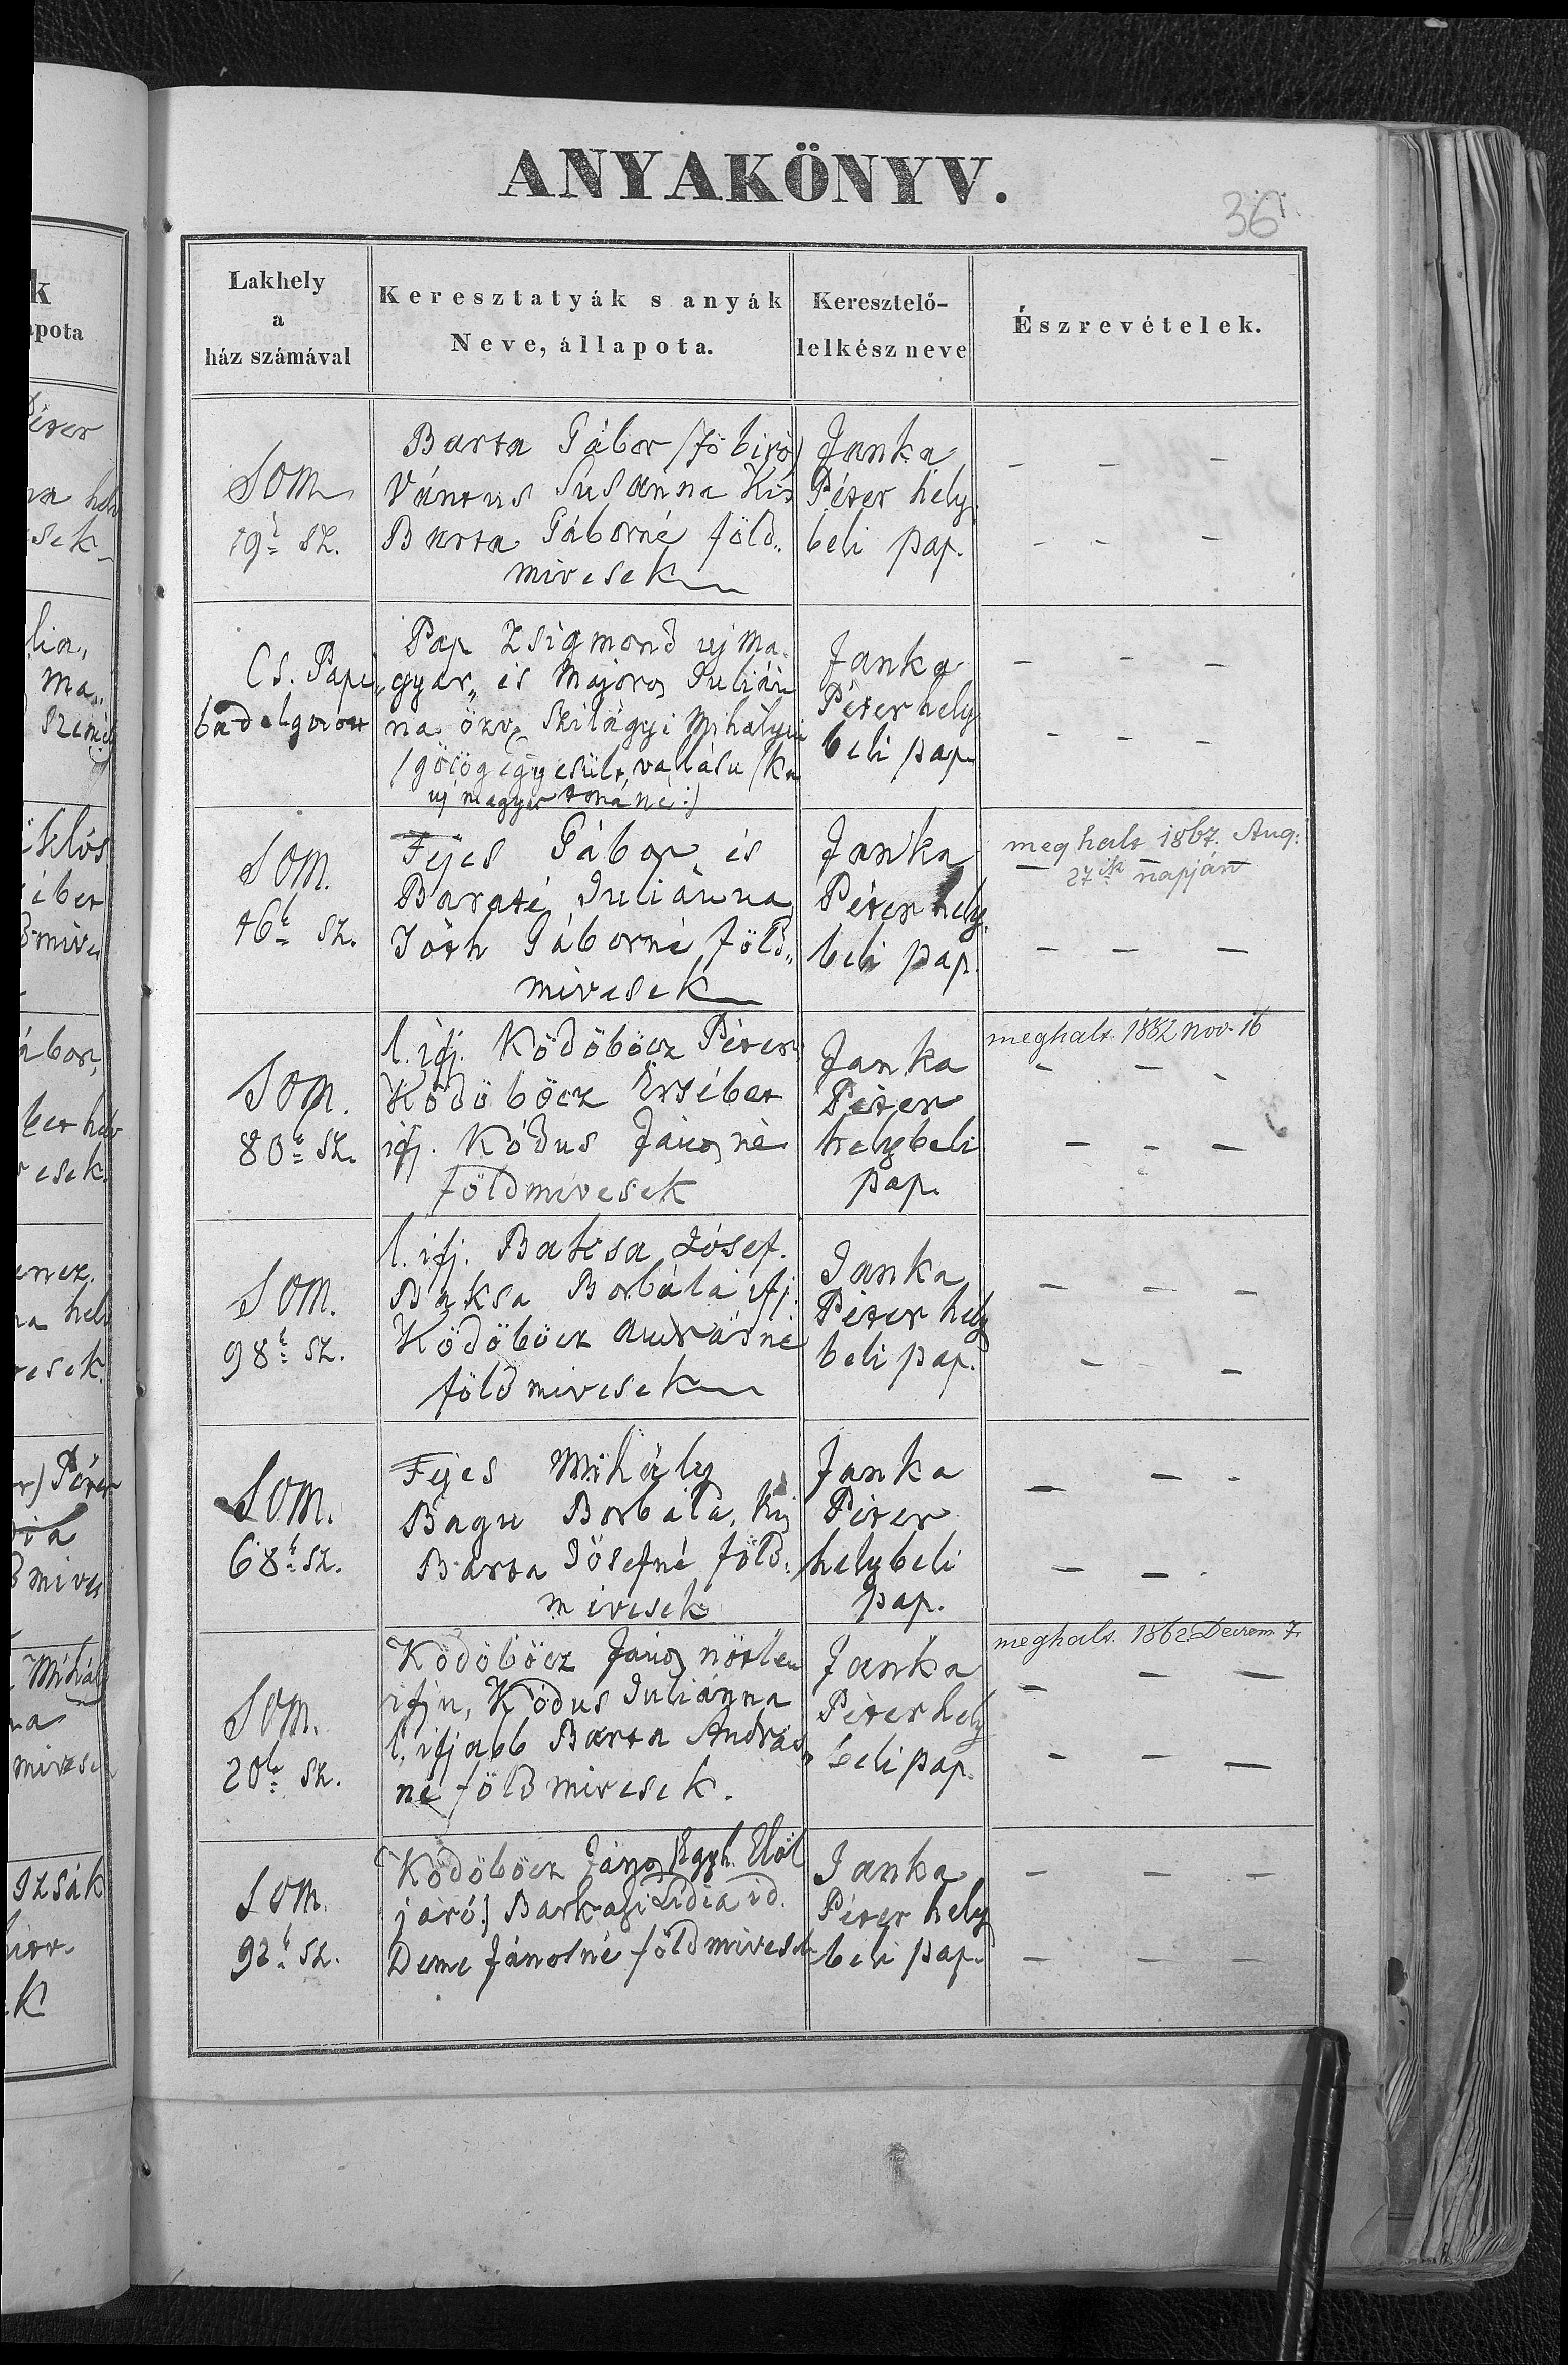 ANYAKÖNYV.
36
Lakhely
a
ház számával
Keresztatyák s anyák
Neve, állapota.
Keresztelő-
lelkész neve
Észrevételek.
Som
19. sz.
Barta Gábor (főbiró)
Vántus Susanna Kis
Barta Gáborné föld„
mivesek
Janka
Péter hely
beli pap.
Cs. Papi
Pap Zsigmond uj ma„
gyar„ és Majoros Julián
na özv. Szilágyi Mihályné
(görög egyesült vallásu
Janka
Péter hely
beli pap
Som.
46. sz.
Fejes Gábor és
Baraté Juliánna
Tóth Gáborné föld„
mivesek
Janka
Péter hely
beli pap.
meghalt 1867. Aug:
27ik napján
Som.
80. sz.
l. ifj. Ködöböcz Péter
Ködöböcz Ersébet
ifj. Kódus János né
földmivesek
Janka
Péter
helybeli
pap.
meghalt. 1882 nov. 16
Som.
98. sz.
l. ifj. Baksa Jósef.
Baksa Borbála ifj.
Ködöböcz Andrásné
földmivesek
Janka
Péter hely
beli pap.
Som.
68. sz.
Fejes Mihály
Bagu Borbála, Kis
Barta Jósefné föld„
mivesek
Janka
Péter
helybeli
pap.
Som.
20. sz.
Ködöböcz János nőtlen
ifju, Kódus Juliánna
l. ifjabb Barta András
né földmivesek.
Janka
Péter hely
beli pap.
meghalt. 1862. Decem. 7.
Som.
92. sz.
Ködöböcz János (Egyh. Elöl
járó) Barkasi Lidia id.
Deme Jánosné földmivesek
Janka
Péter hely
beli pap.